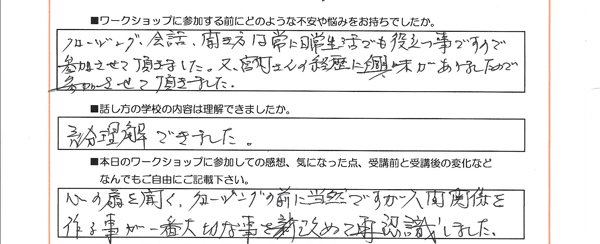 ■ワークショップに参加する前にどのような不安や悩みをお持ちでしたか。
クロージング、会話、聞き方は常に日常生活でも役立つ事ですので
参加させて頂きました。又、宮町さんの経歴に興味がありましたので
参加させて頂きました。
■話し方の学校の内容は理解できましたか。
充分理解できました。
■本日のワークショップに参加しての感想、気になった点、受講前と受講後の変化など
なんでもご自由にご記載下さい。
心の扉を開く、クロージングの前に当然ですが人間関係を
作る事が一番大切な事を新改めて再認識しました。